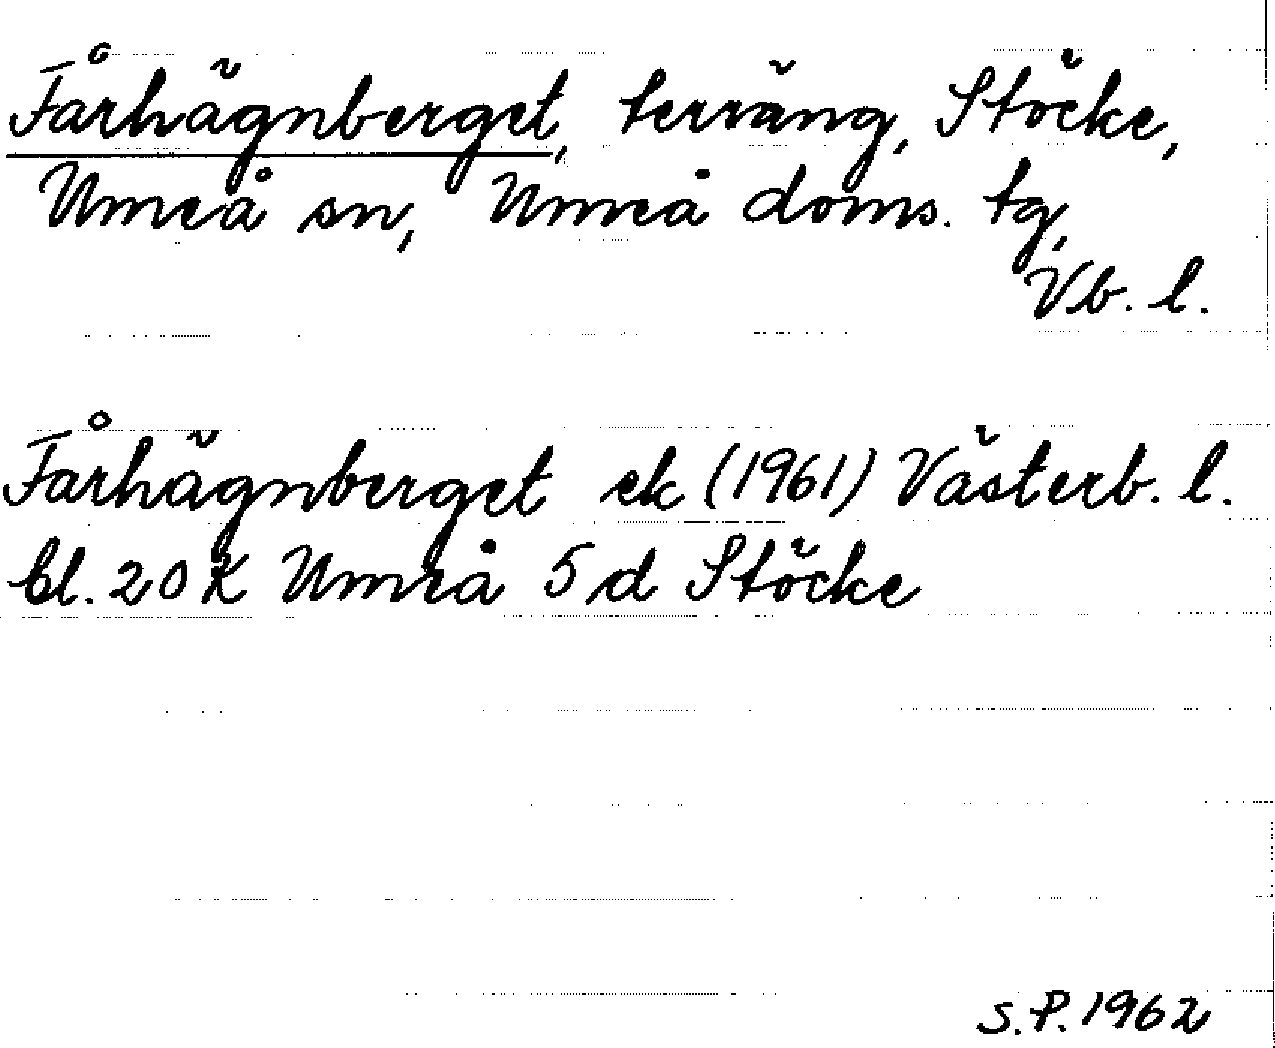 Fårhägnberget, terräng, Stöcke,
Umeå sn, Umeå doms. tg,
Vb. l.
Fårhägnberget ek (1961) Västerb. l.
bl. 20 K Umeå 5 d Stöcke
S.P. 1962